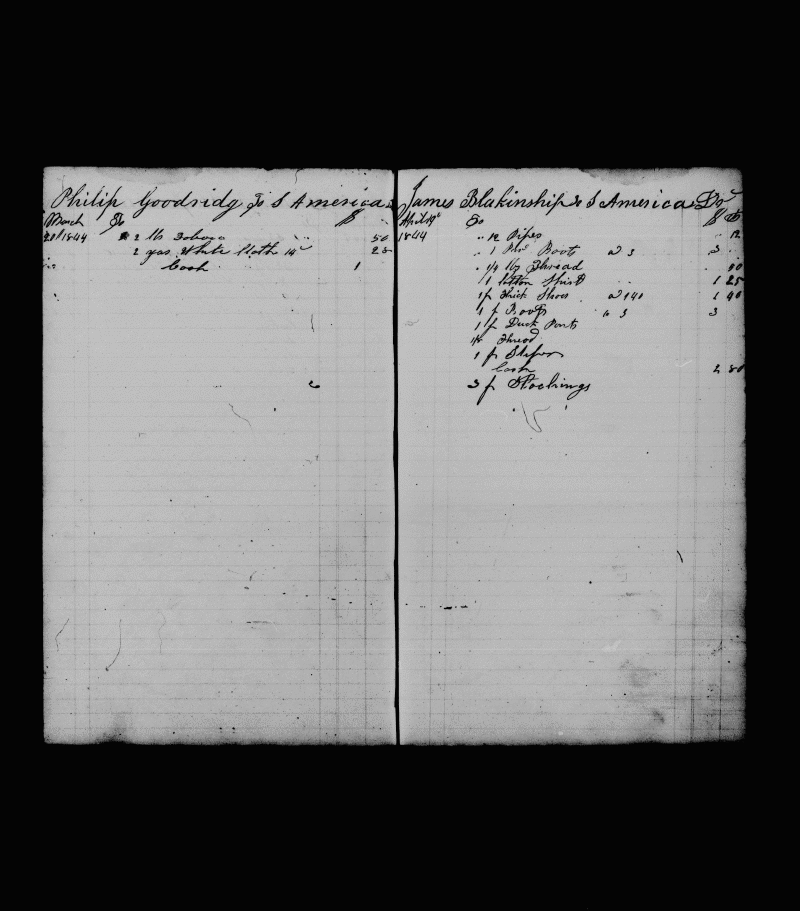 Philip Goodridg To S America
March To $
20th 1844 2 lbs Tobaco 50
2 yas White Cloth 14c 28
Cash 1
2
James Blakinship To S America Dr
April 19th To $
1844 12 Pipes 12
1 Pr Boots a 3 3
1/4 lb Thread
1 Cotton Shirt 1 25
1 p Thick Shoes a 140 1 40
1 p Boots a 3 3
1 p Duck Pants
1/8 Thread
1 p
Cash 2 80
3 p Stockings